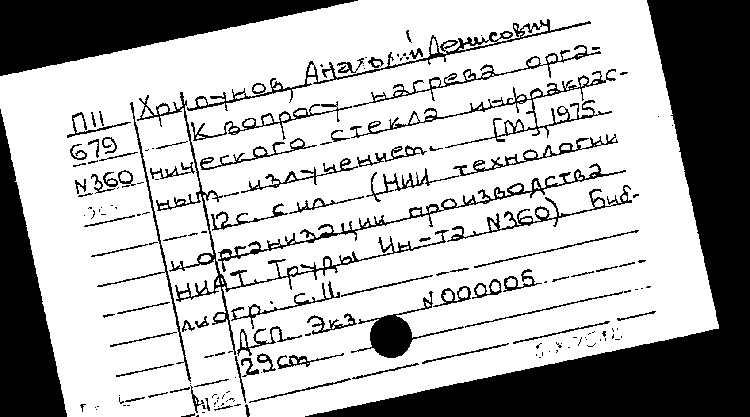 П11 Хрипунов, Анатолий Денисович
679 К вопросу нагрева орга=
N360 нического стекла инфракрас-
ным излучением. [М.], 1975.
12с. с ил. (НИИ технологии
и организации производства
НИАТ. Труды Ин-та. N360). Биб-
лиогр.: с.11.
ДСП. Экз. N000006
29cm